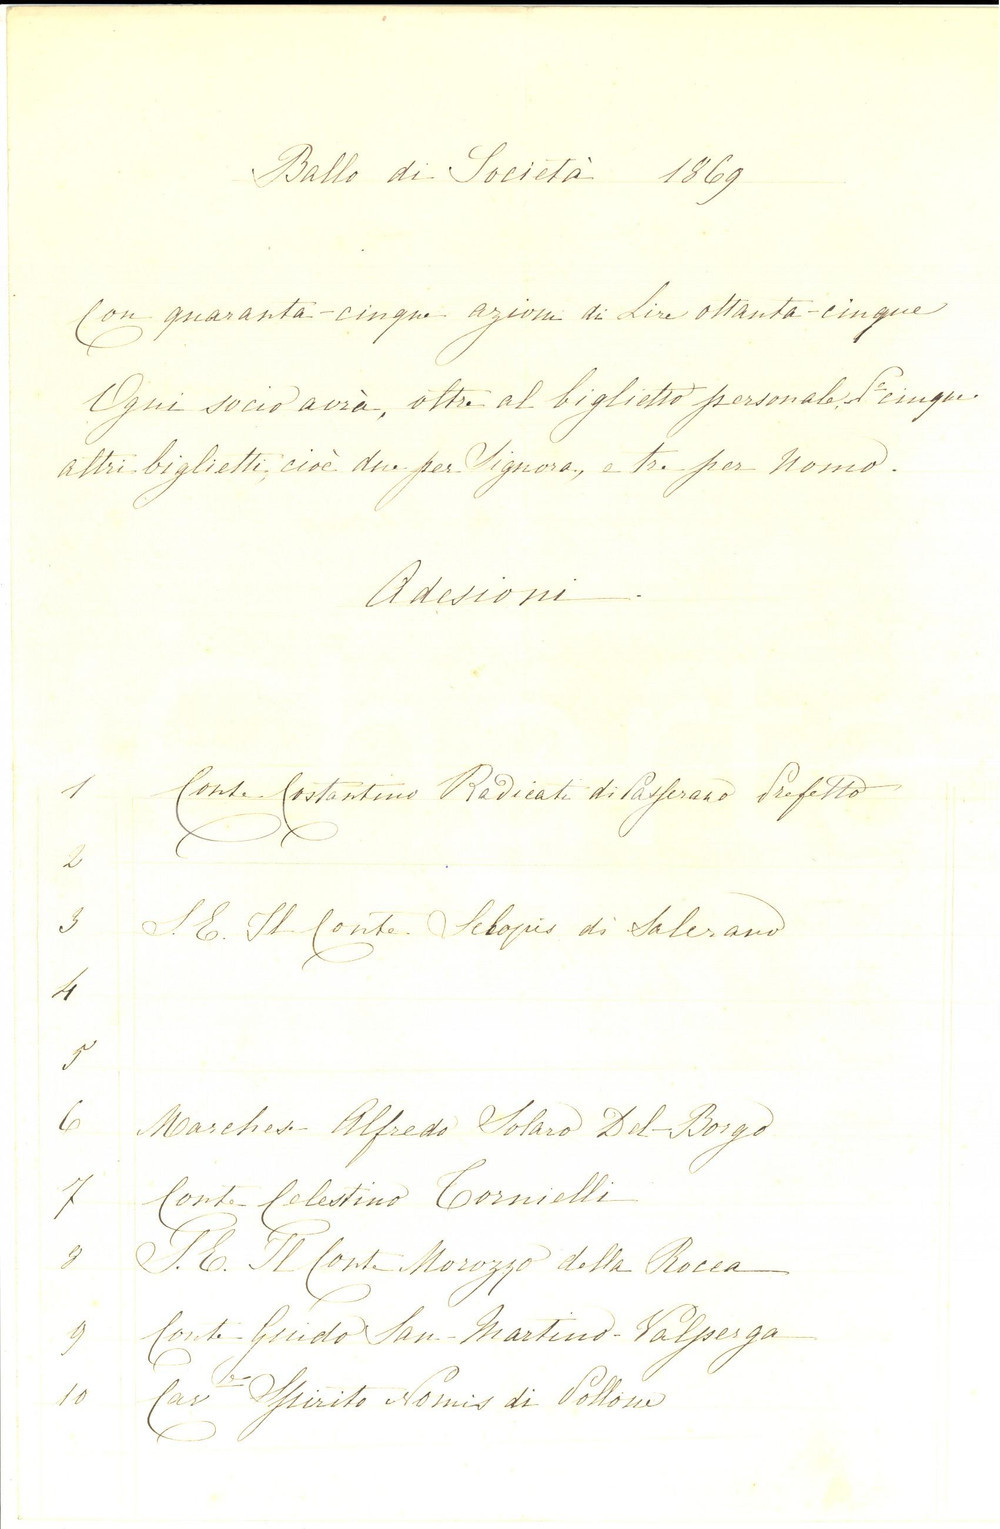 Ballo di Società 1869
Con quaranta-cinque azioni di Lire ottanta-cinque
Ogni socio avrà, oltre al biglietto personale, cinque
altri biglietti, cioè due per Signora, e tre per Uomo.
Adesioni.
1 Conte Costantino Radicati di Passerano Prefetto
2
3 S. E. Il Conte Sclopis di Salerano
4
5
6 Marchese Alfredo Solaro Del-Borgo
7 Conte Celestino Tornielli
8 S. E. Il Conte Morozzo della Rocca
9 Conte Guido San-Martino-Valperga
10 Cavre Spirito Nomis di Pollone